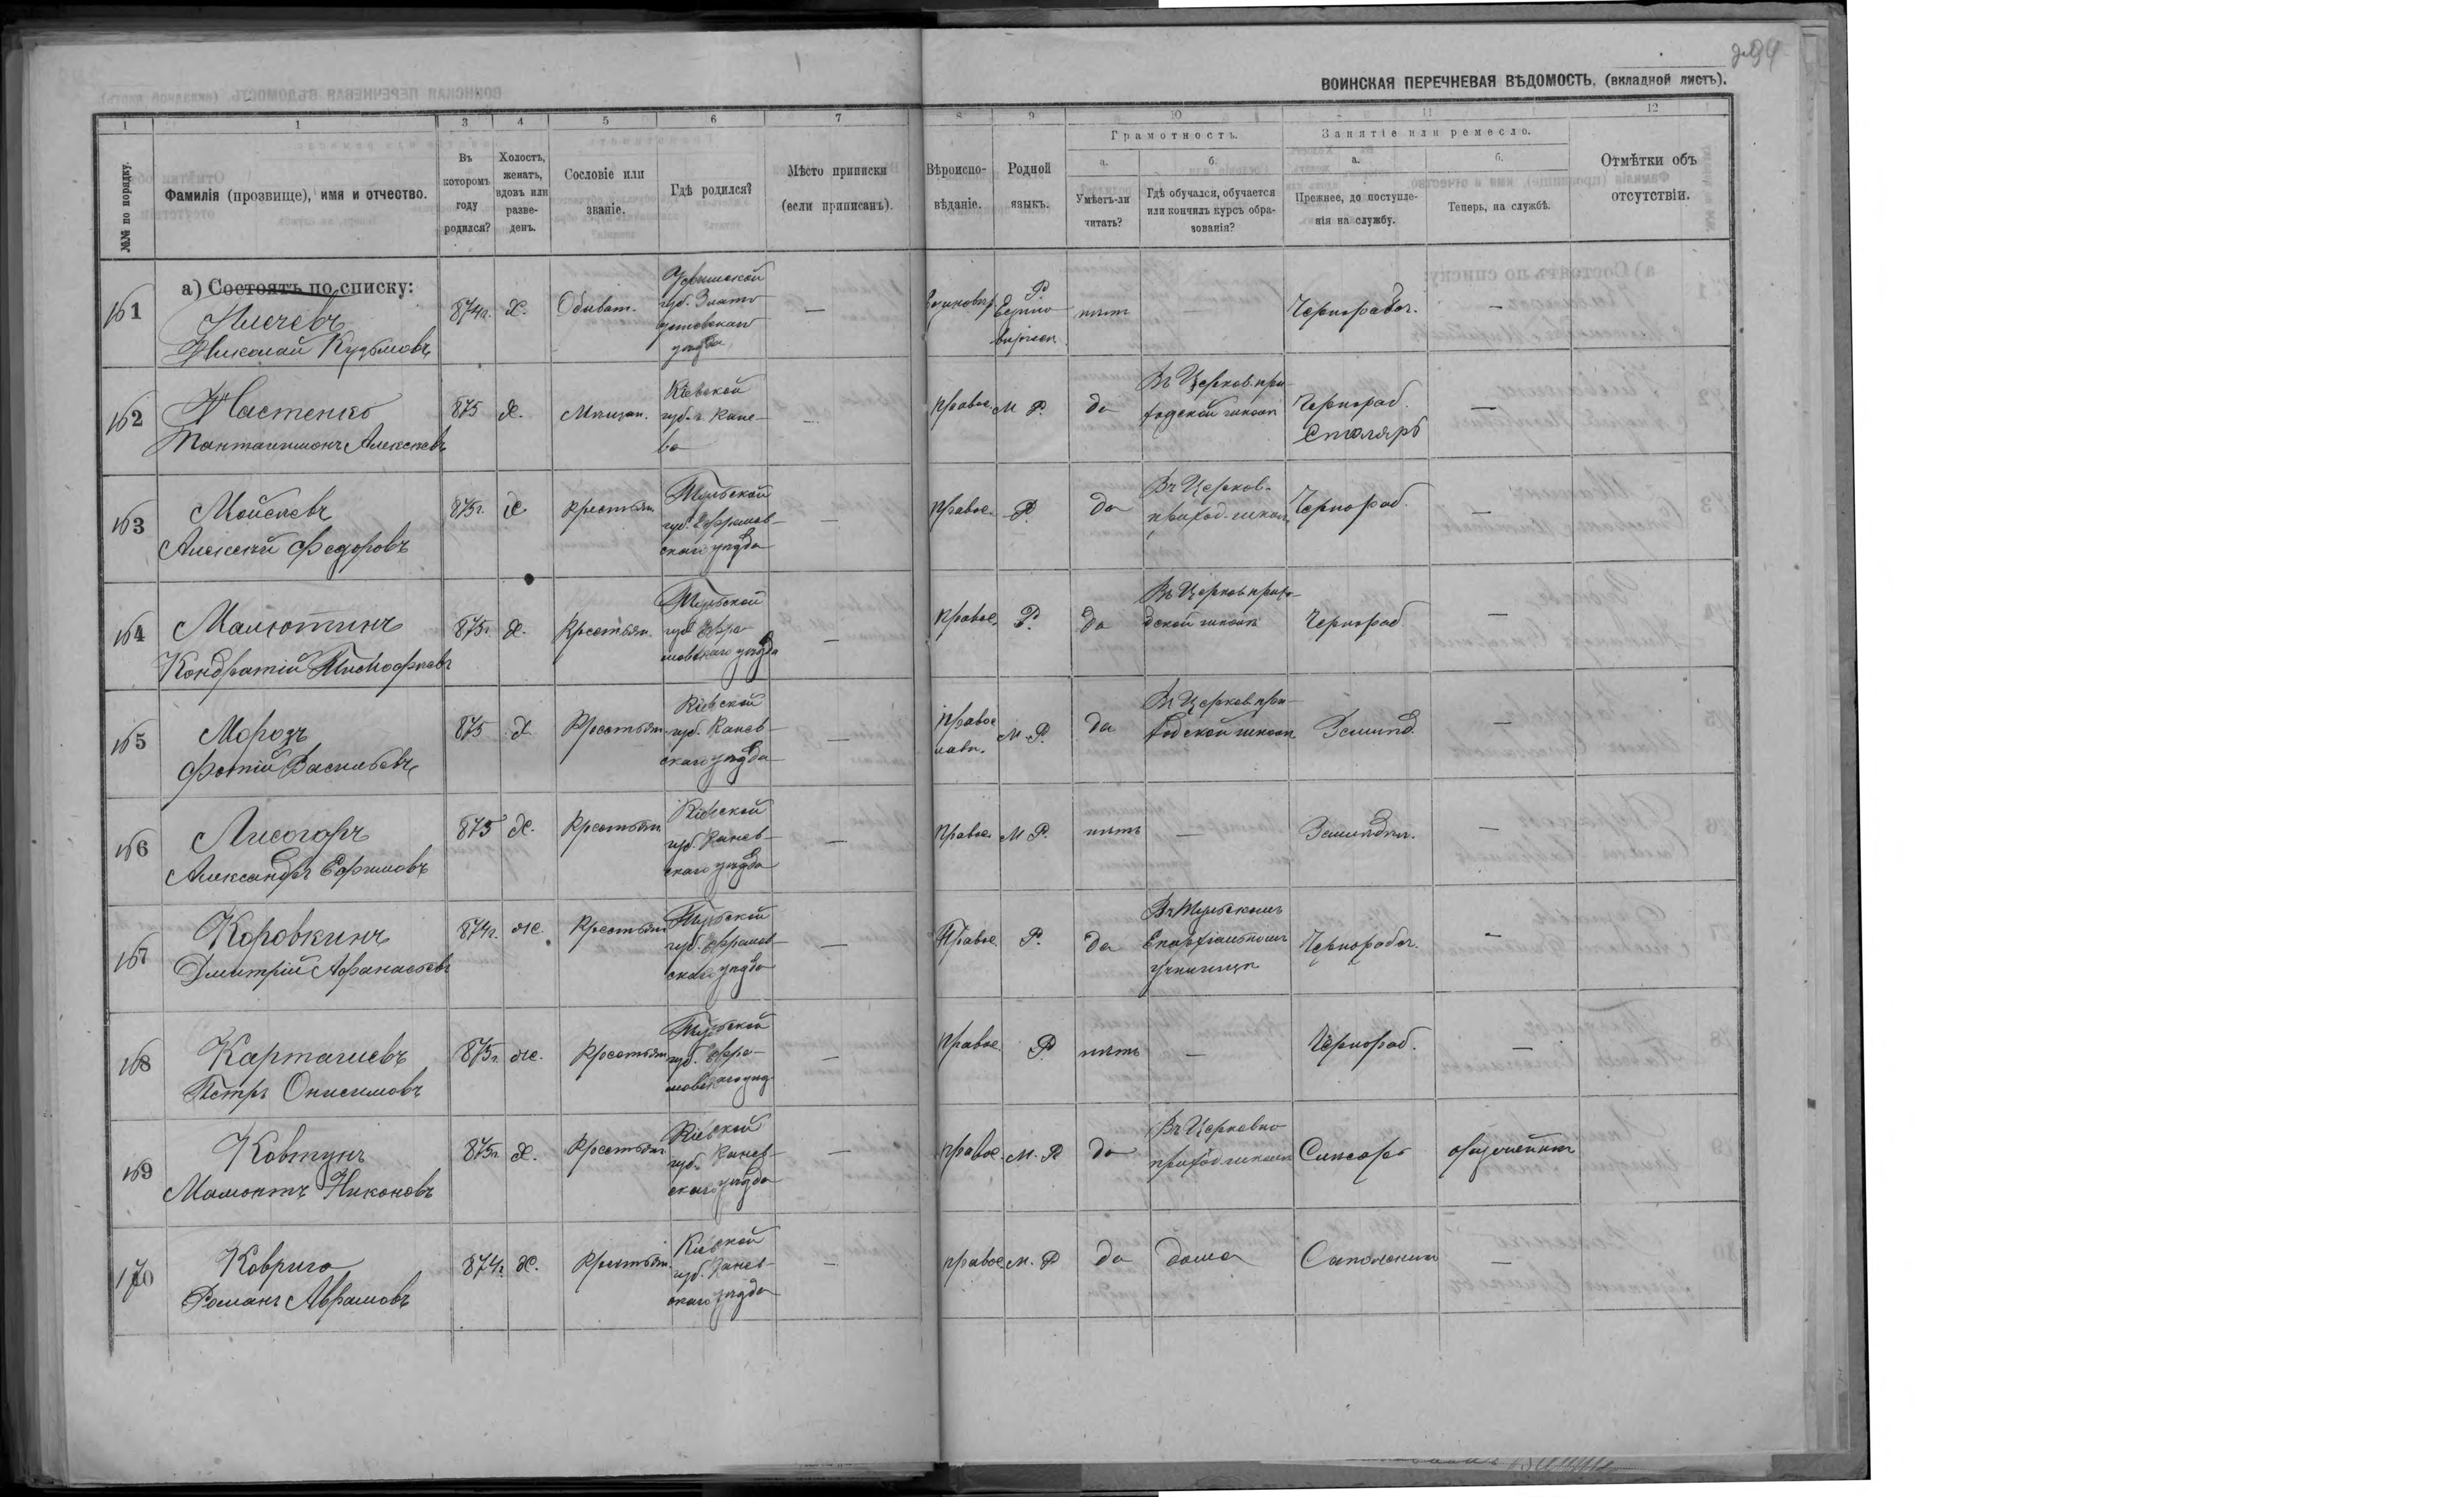 294
ВОИНСКАЯ ПЕРЕЧНЕВАЯ ВѢДОМОСТЬ. (вкладной листъ).
1 1 3 4 5 6 7 8 9 10 11 12
№№ по порядку.
Фамилія (прозвище), имя и отчество.
Въ
которомъ
году
родился?
Холостъ,
женатъ,
вдовъ или
разве-
денъ.
Сословіе или
званіе.
Гдѣ родился?
Мѣсто приписки
(если приписанъ).
Вѣроиспо-
вѣданіе.
Родной
языкъ.
Грамотность.
а.
Умѣетъ-ли
читать?
б.
Гдѣ обучался, обучается
или кончилъ курсъ обра-
зованія?
Занятіе или ремесло.
а.
Прежнее, до поступле-
нія на службу.
б.
Теперь, на службѣ.
Отмѣтки объ
отсутствіи.
а) Состоятъ по списку:
161
Николай Кузьмовъ
874 г.
Х.
Обыват.
губ. Злато
устовскаго
уѣзда
—
Единовѣр.
Р.
нѣтъ
—
Чернорабоч.
—
162
Настенко
Пантелимонъ Алексѣевъ
875
Х.
Мѣщан.
Кіевской
губ. г. Кане-
ва
—
Правос.
М Р.
да
Въ Церков. при-
ходской школѣ
Чернораб.
Столяръ
—
163
Мойсѣевъ
Алексѣй Федоровъ
875 г.
Х.
Крестьян.
Тульской
губ. Ефремов-
скаго уѣзда
—
Правос.
Р.
да
Въ Церков-
приход. школѣ
Чернораб.
—
164
Малютинъ
Кондратій Тимофѣевъ
875 г.
Х.
Крестьян.
Тульской
губ. Ефре-
мовскаго уѣзда
—
Правос.
Р.
да
Въ Церков прихо-
дской школѣ
Чернораб.
—
165
Морозъ
Фотій Васильевъ
875
Х.
Крестьян.
Кіевской
губ. Канев-
скаго уѣзда
—
Правос
лавн.
М. Р.
да
Въ Церков при-
ходской школѣ
Землед.
—
166
Лисогоръ
Александръ Ефимовъ
875
Х.
Крестьян.
Кіевской
губ. Канев-
скаго уѣзда
—
Правос.
М Р.
нѣтъ
—
Земледѣл.
—
167
Коровкинъ
Дмитрій Афанасьевъ
874 г.
Же.
Крестьян.
Тульской
губ. Ефремов-
скаго уѣзда
—
Правос.
Р.
да
Въ Тульскомъ
Епархіальномъ
училищѣ
Чернорабоч.
—
168
Карташевъ
Петръ Онисимовъ
875 г.
Же.
Крестьян.
Тульской
губ. Ефре-
мовскаго уѣзд
—
Правос.
Р.
нѣтъ
—
Чернораб.
—
169
Ковтунъ
Мамонтъ Никоновъ
875 г.
Х.
Крестьян.
Кіевской
губ. Канев-
скаго уѣзда
—
Правос.
М. Р.
да
Въ Церковно
приход. школѣ
Слесарь
оружейникъ
170
Коврига
Романъ Аврамовъ
874 г.
Х.
Крестьян.
Кіевской
губ. Канев-
скаго уѣзда
—
правос.
М. Р
да
дома
Сапожникъ
—